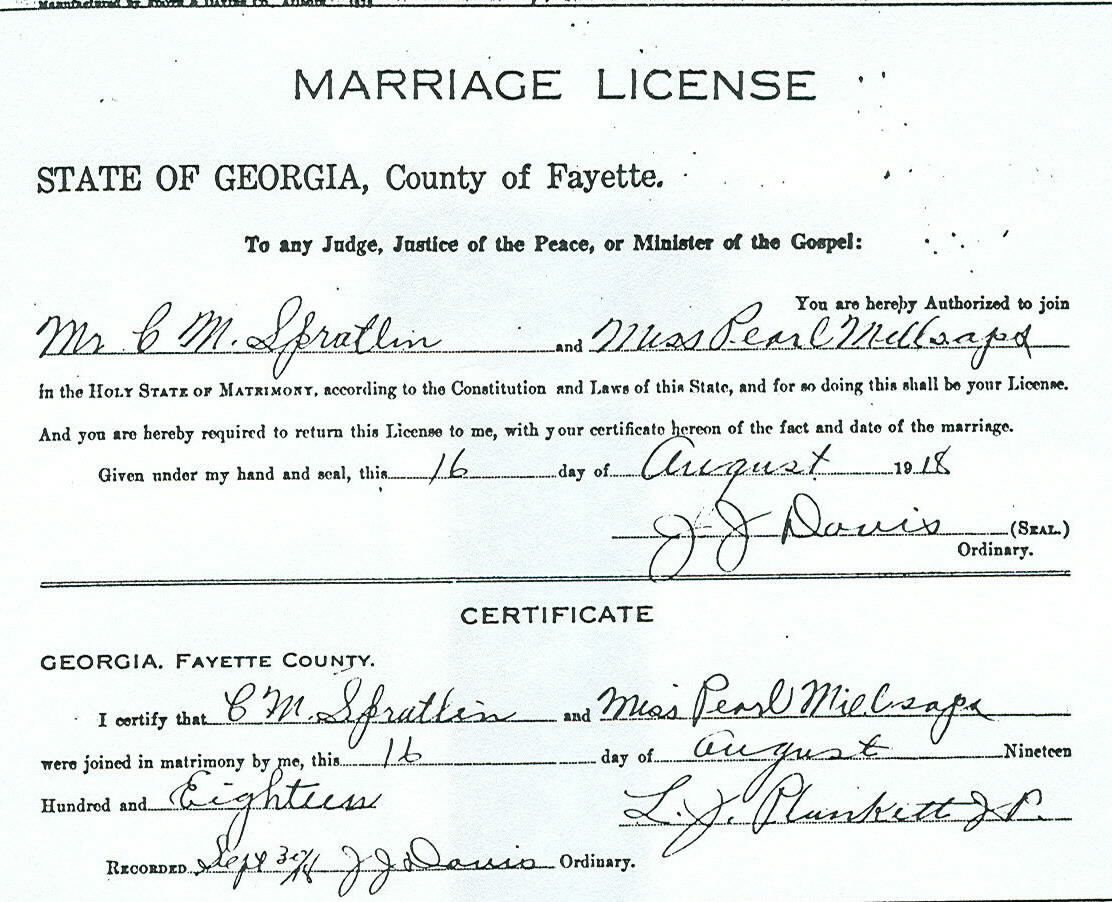 Manufactured by Foote & Davies Co., Atlanta
MARRIAGE LICENSE
STATE OF GEORGIA, County of Fayette.
To any Judge, Justice of the Peace, or Minister of the Gospel:
You are hereby Authorized to join
Mr C M. Spratlin and Miss Pearl Millsaps
in the HOLY STATE OF MATRIMONY, according to the Constitution and Laws of this State, and for so doing this shall be your License.
And you are hereby required to return this License to me, with your certificate hereon of the fact and date of the marriage.
Given under my hand and seal, this 16 day of August 1918
J J Davis (SEAL.)
Ordinary.
CERTIFICATE
GEORGIA. FAYETTE COUNTY.
I certify that C M. Spratlin and Miss Pearl Millsaps
were joined in matrimony by me, this 16 day of August Nineteen
Hundred and Eighteen L. J. Plunkett J P.
RECORDED Sept J J Davis Ordinary.